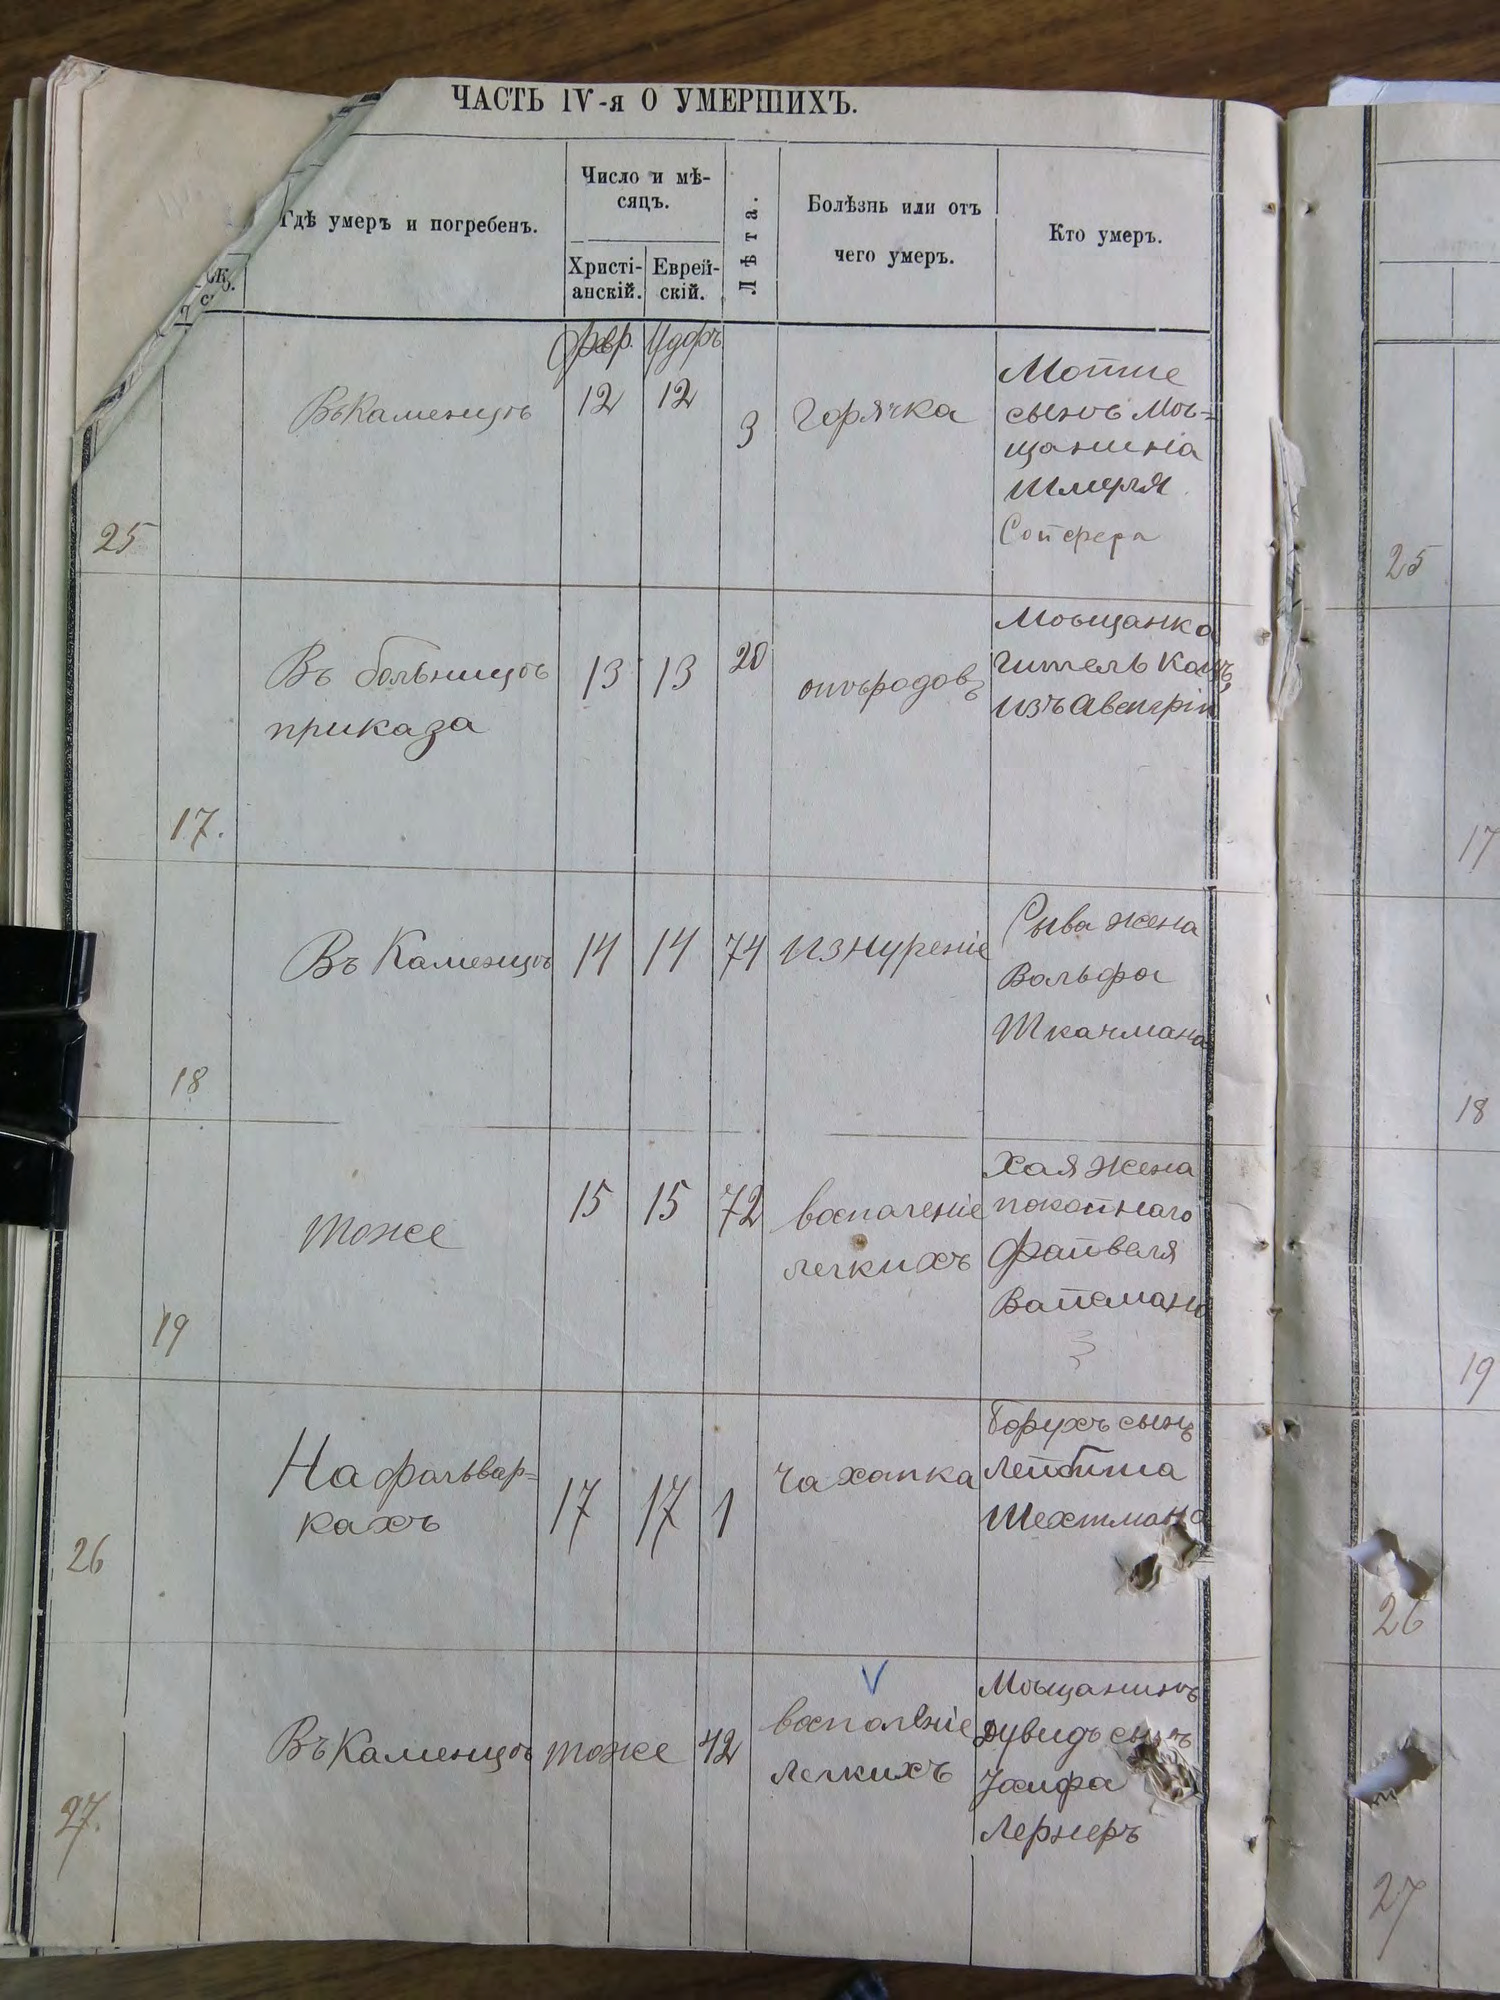 ЧАСТЬ IV-я О УМЕРШИХЪ.
Гдѣ умеръ и погребенъ.
Число и мѣ-
сяцъ.
Христі-
анскій.
Еврей-
скій.
Лѣта.
Болѣзнь или отъ
чего умеръ.
Кто умеръ.
Февр. Удоръ
25
Въ Каменцѣ
12
12
3
Горячка
Мотие
сынъ Мѣ-
щанина
Шмуля
Сойфера
25
17.
Въ больницѣ
приказа
13
13
20
отъ родовъ
Мѣщанка
Гитель
изъ Авсгріи
17
18
Въ Каменцѣ
14
14
74
Изнуреніе
Сыва жена
Вольфа
Ткачмана
18
19
тоже
15
15
72
воспаленіе
легкихъ
Хая жена
покойнаго
Файвеля
Вайсмана
19
26
На фольвар-
кахъ
17
17
1
Чахотка
Борухъ сынъ
Лейбиша
Шехтмана
26
27.
Въ Каменцѣ
тоже
42
воспаленіе
легкихъ
Мѣщанинъ
Дувидъ сынъ
Лернеръ
27